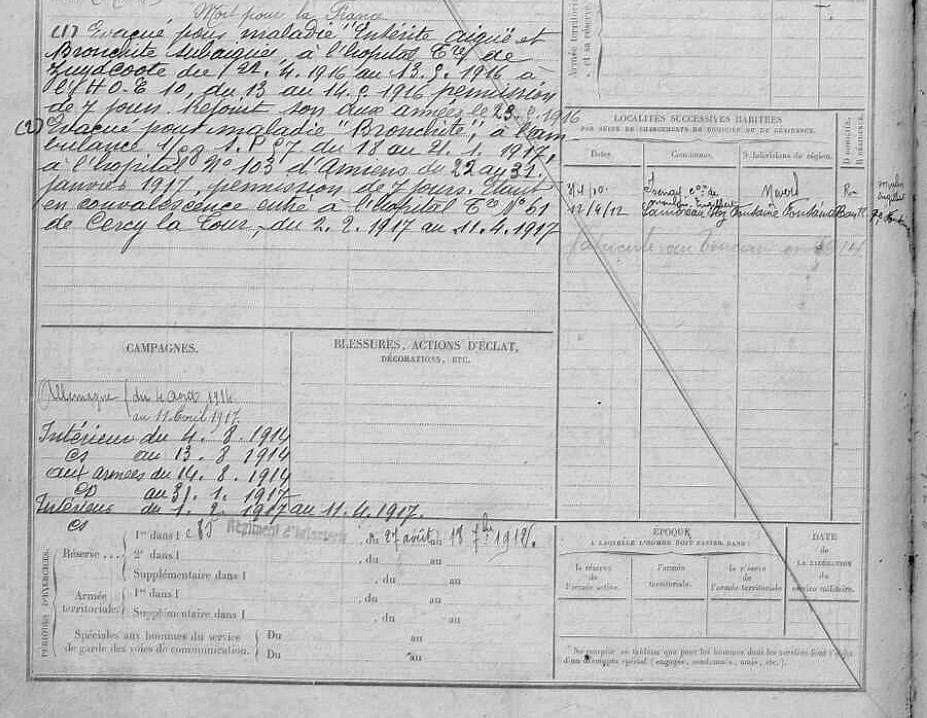 Mort pour la France
(1) Evacué pour maladie "Entérite aiguë et
Bronchite subaiguë, à l'hopital Tre de
Zuydcoote du 22. 4. 1916 au 13. 5. 1916 à
l'HOE 10, du 13 au 14. 5. 1916 permission
de 7 jours. Rejoint son aux armées le 23. 5. 1916
(2) Evacué pour maladie "Bronchite", à l'am
bulance 1/ du 18 au 21. 1. 1917,
à l'hopital N° 103 d'Amiens du 22 au 31.
janvier 1917, permission de 7 jours. Etant
en convalescence entré à l'hopital Tre N° 61
de Cercy la Tour, du 2. 2. 1917 au 11. 4. 1917
Armée territoriale et sa réserve.
LOCALITÉS SUCCESSIVES HABITÉES
PAR SUITE DE CHANGEMENTS DE DOMICILE OU DE RÉSIDENCE.
Dates. Communes. Subdivisions de région. D domicile. R résidence.
Isenay Cne de Nevers
Moulins Engilbert
12/4/12 Fontaine
CAMPAGNES.
Allemagne du 4 Août 1914
au 11 Avril 1917
Intérieur du 4. 8. 1914
au 13. 8 1914
aux armées du 14. 8. 1914
au 31. 1. 1917
Intérieur du 1. 2. 1917 au 11. 4. 1917.
BLESSURES, ACTIONS D'ÉCLAT,
DÉCORATIONS, ETC.
PÉRIODES D'EXERCICES.
Réserve
1re dans le 85 Régiment d'Infanterie, du 27 août au 18 7bre 1912.
2e dans l , du au
Supplémentaire dans l , du au
Armée territoriale.
1re dans l , du au
Supplémentaire dans l , du au
Spéciales aux hommes du service
de garde des voies de communication.
Du au
Du au
ÉPOQUE
À LAQUELLE L'HOMME DOIT PASSER DANS :
la réserve de l'armée active.
l'armée territoriale.
la réserve de l'armée territoriale
DATE
de
LA LIBÉRATION
du
service militaire.
Ne remplir ce tableau que pour les hommes dont les services font l'objet
d'un décompte spécial (engagés, condamnés, omis, etc.).